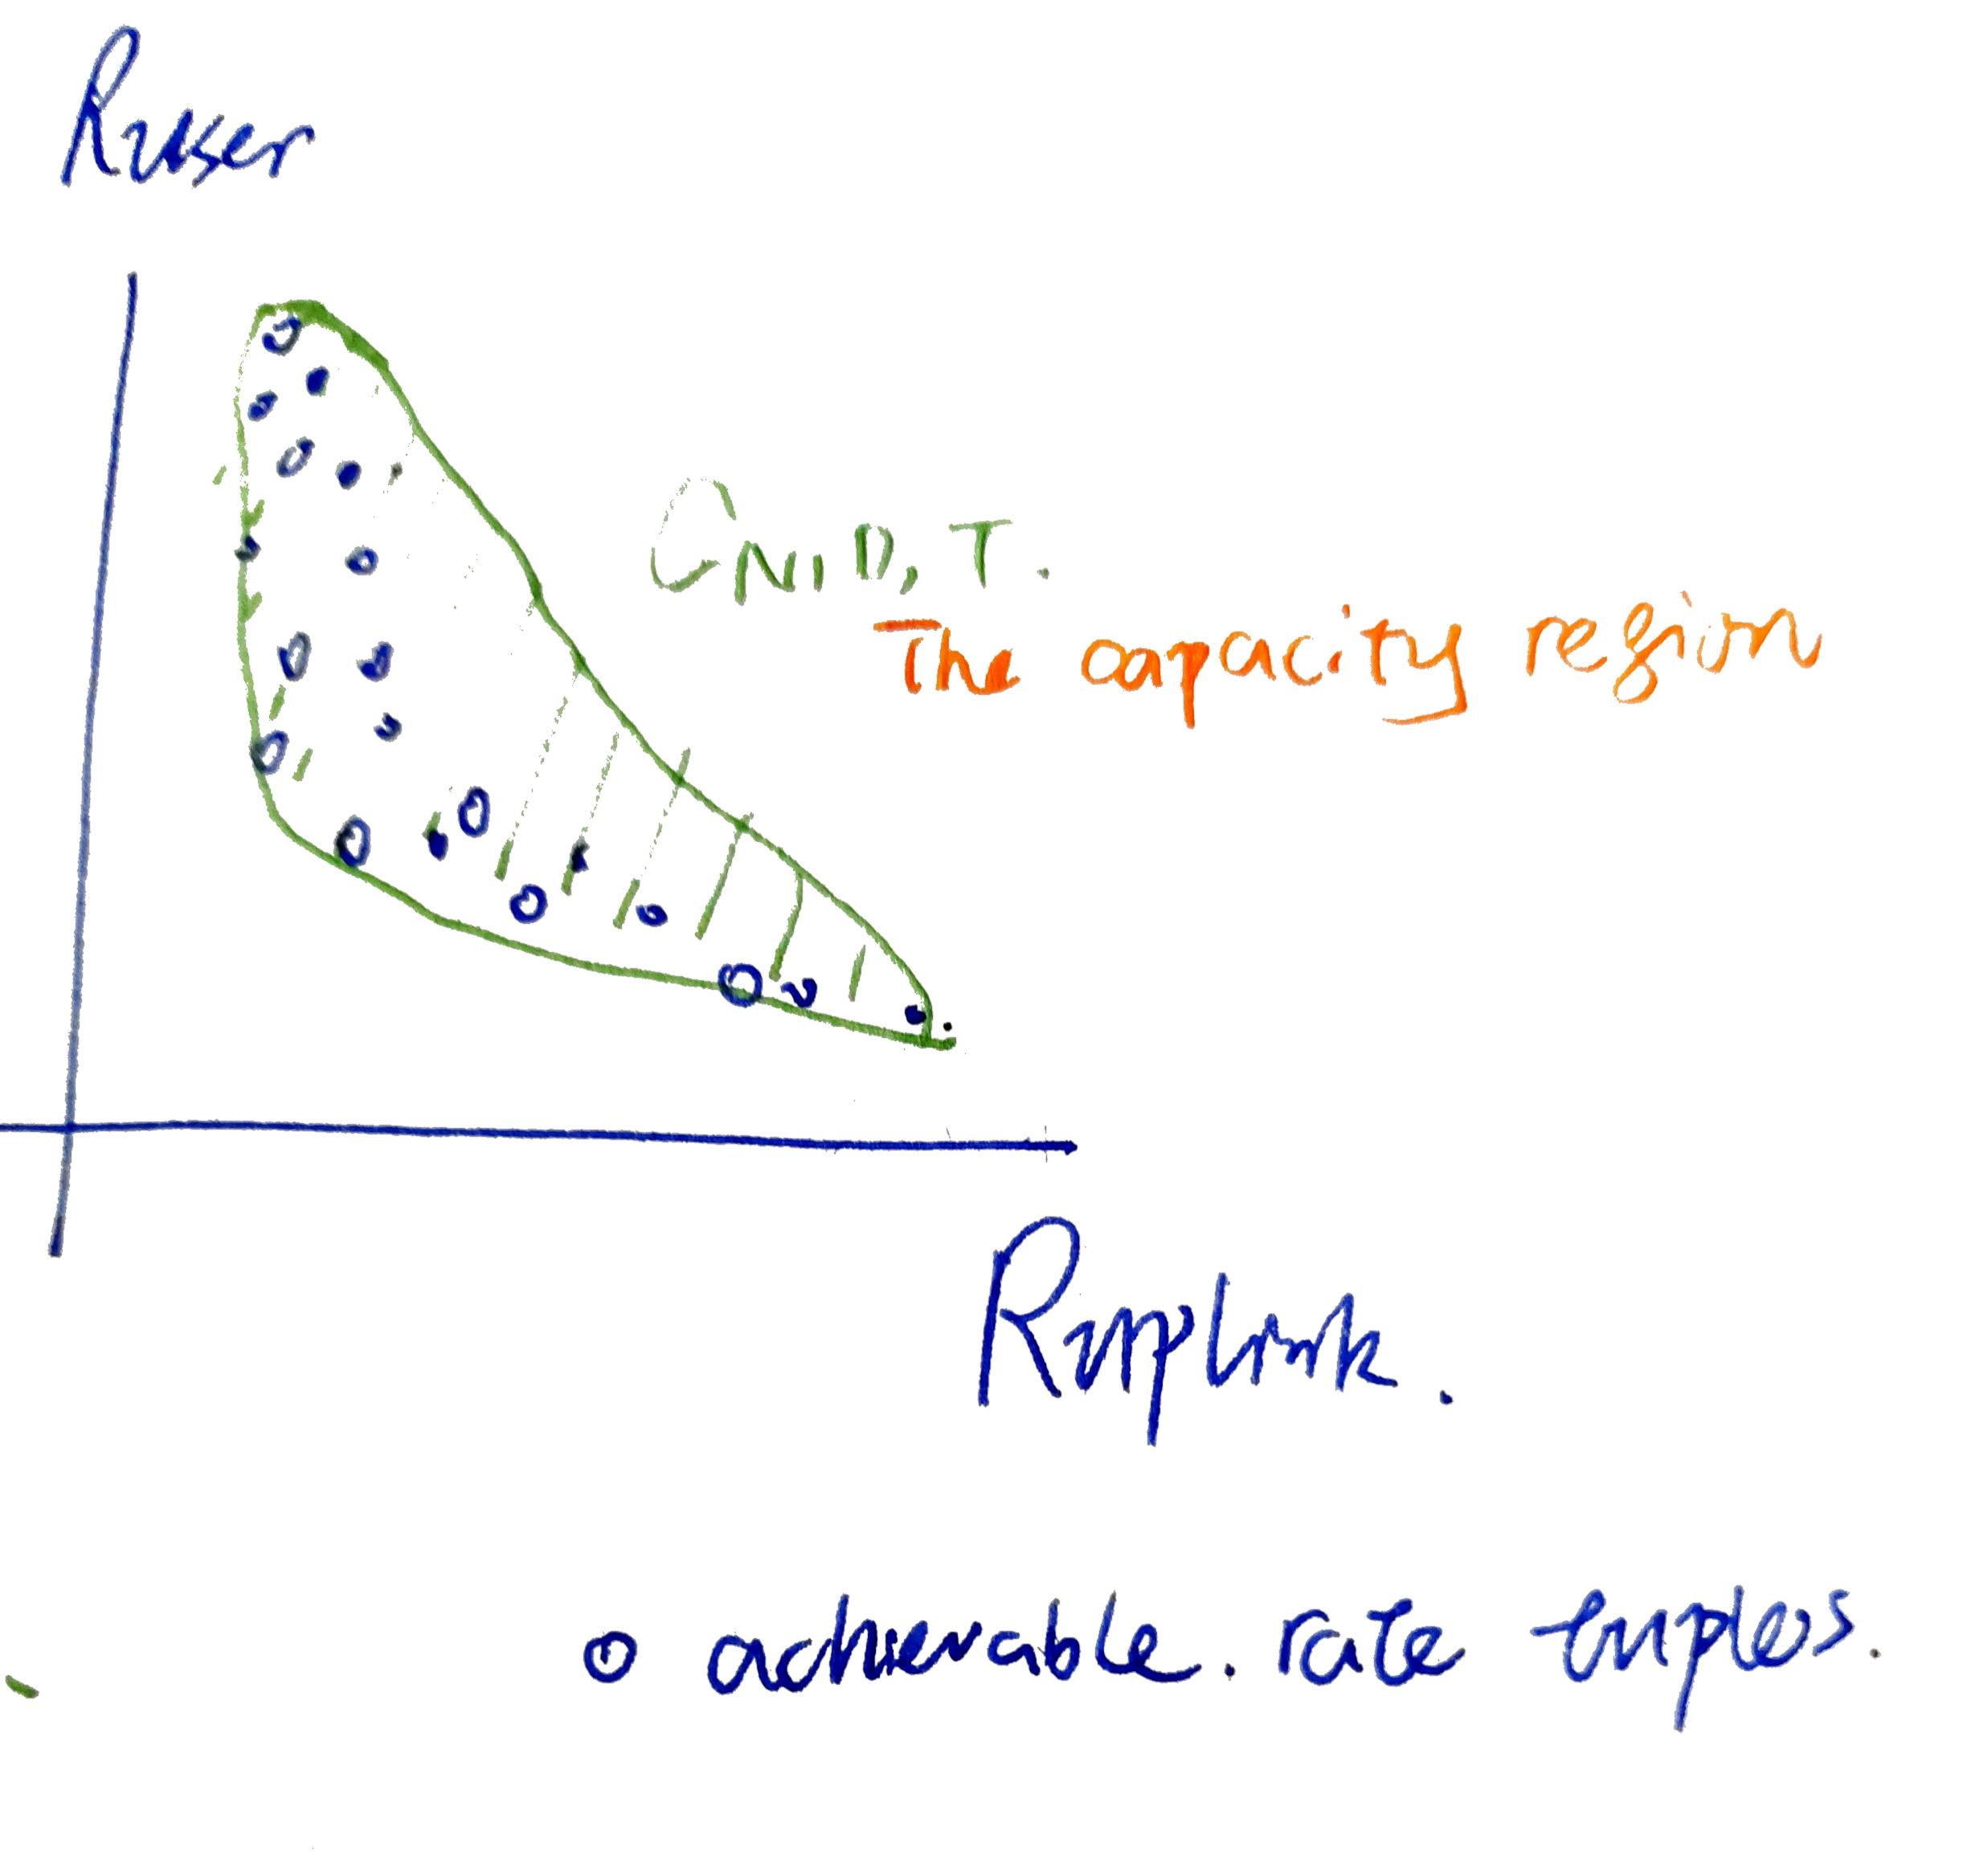 Ruser
CN, D, T.
The capacity region
Ruplink.
o achievable. rate tuples.